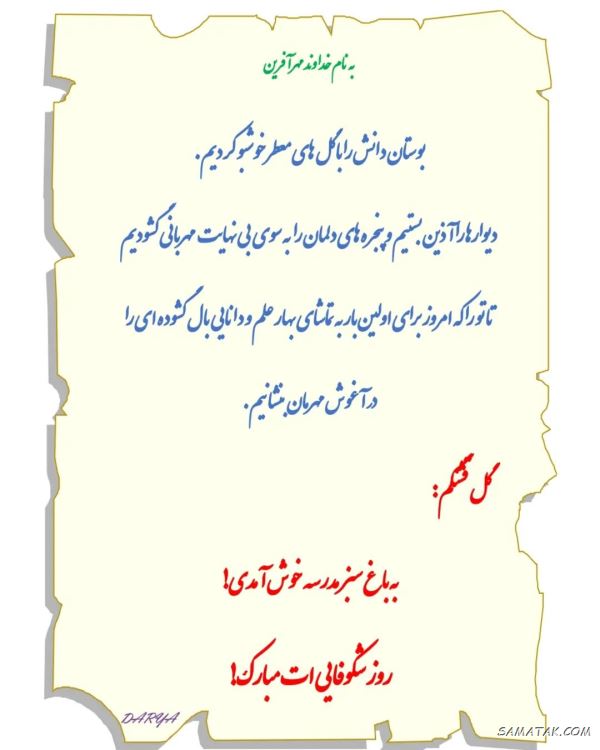 به نام خداوند مهرآفرین
بوستان دانش را با گل های معطر خوشبو کردیم.
دیوارها را آذین بستیم و پنجره های دلمان را به سوی بی نهایت مهربانی گشودیم
تا تو را که امروز برای اولین بار به تماشای بهار علم و دانایی بال گشوده ای را
در آغوش مهرمان بنشانیم.
گل قشنگم:
به باغ سبز مدرسه خوش آمدی!
روز شکوفایی ات مبارک!
DARYA
SAMATAK.COM